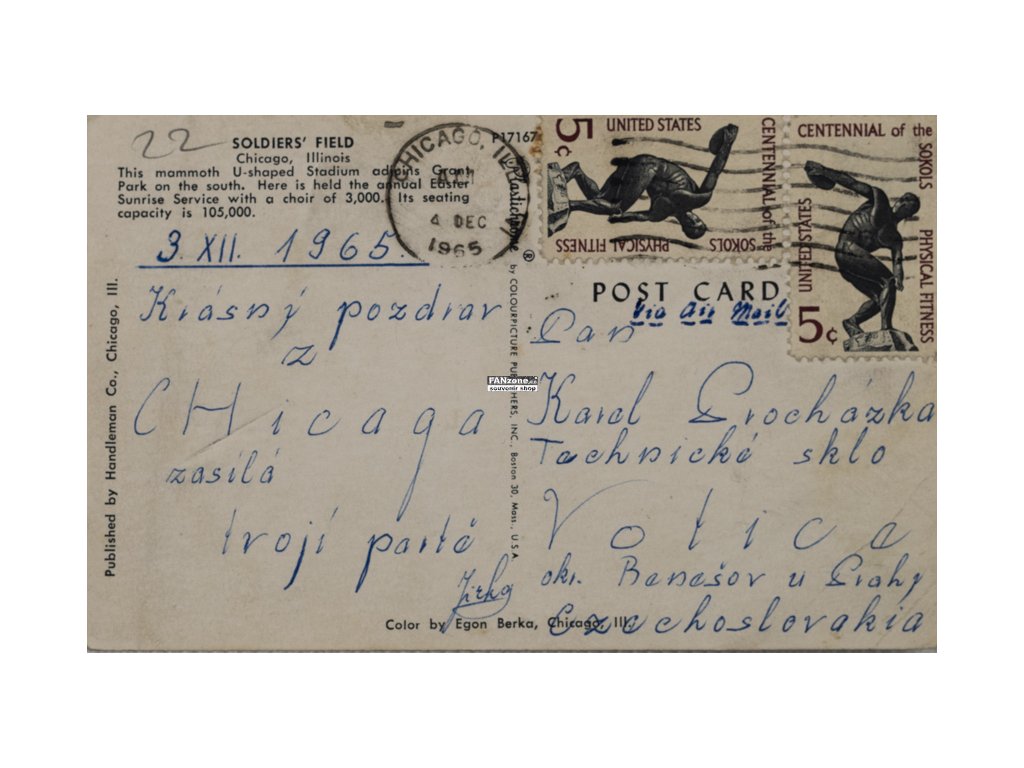 22
SOLDIERS' FIELD
Chicago, Illinois
This mammoth U-shaped Stadium adjoins Grant
Park on the south. Here is held the annual Easter
Sunrise Service with a choir of 3,000. Its seating
capacity is 105,000.
3. XII. 1965.
Krásný pozdrav
z
CHicaga
zasílá
tvojí partě
Jirka
Published by Handleman Co., Chicago, Ill.
Color by Egon Berka, Chicago, Ill.
P17167
Plastichrome
® by COLOURPICTURE PUBLISHERS, INC., Boston 30, Mass., U.S.A.
CHICAGO, ILL
4 DEC
1965
5c
UNITED STATES
CENTENNIAL of the
SOKOLS
PHYSICAL FITNESS
CENTENNIAL of the
SOKOLS
PHYSICAL FITNESS
UNITED STATES
5c
POST CARD
Via Air Mail
Pan
Karel Procházka
Technické sklo
Votice
okr. Benešov u Prahy
Czechoslovakia
FANzone.cz
souvenir shop